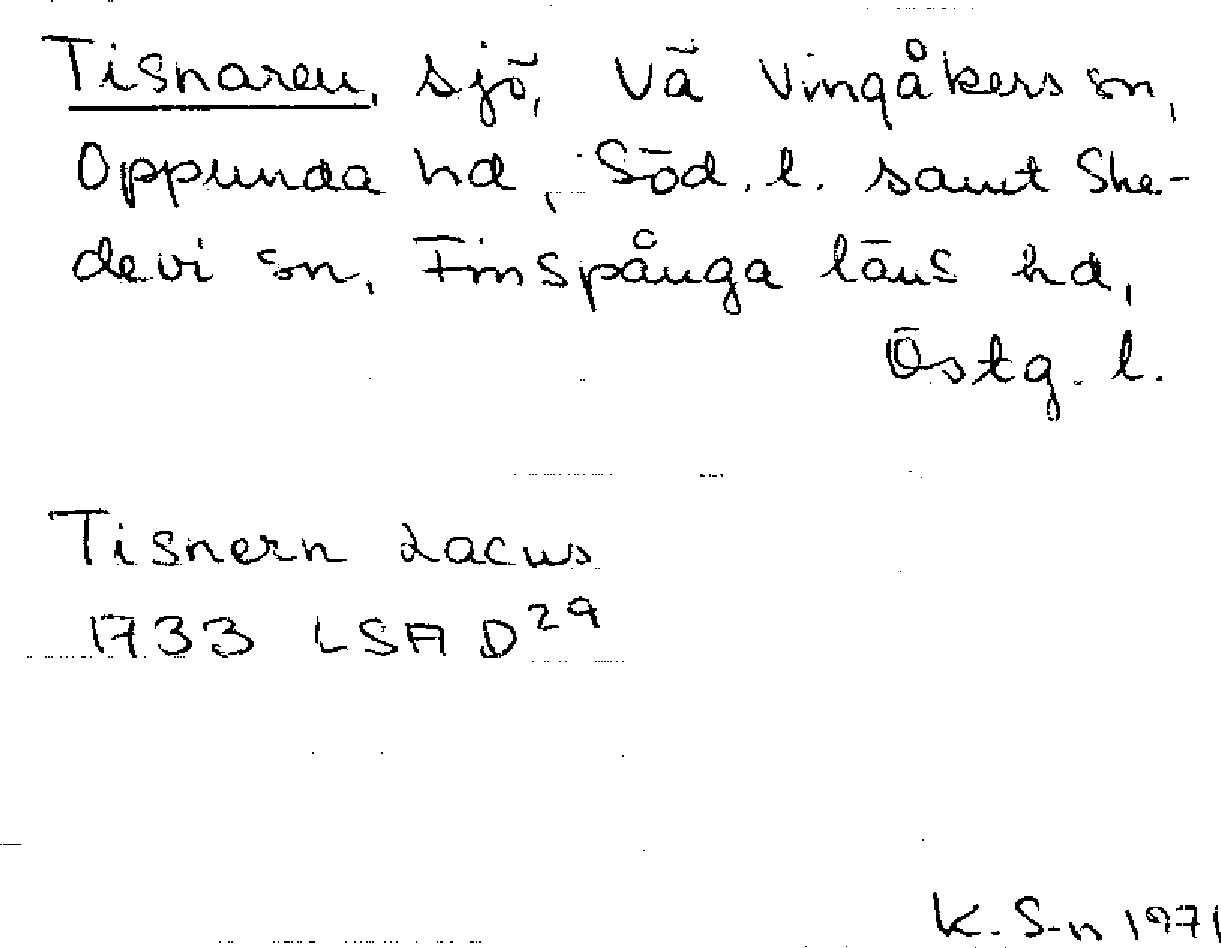 Tisnaren, sjö, Vä Vingåkers sn,
Oppunda hd, Söd. l. samt Ske-
devi sn, Finspånga läns hd,
Östg. l.
Tisnern Lacus
1733 LSA D²⁹
K. S-n 1971